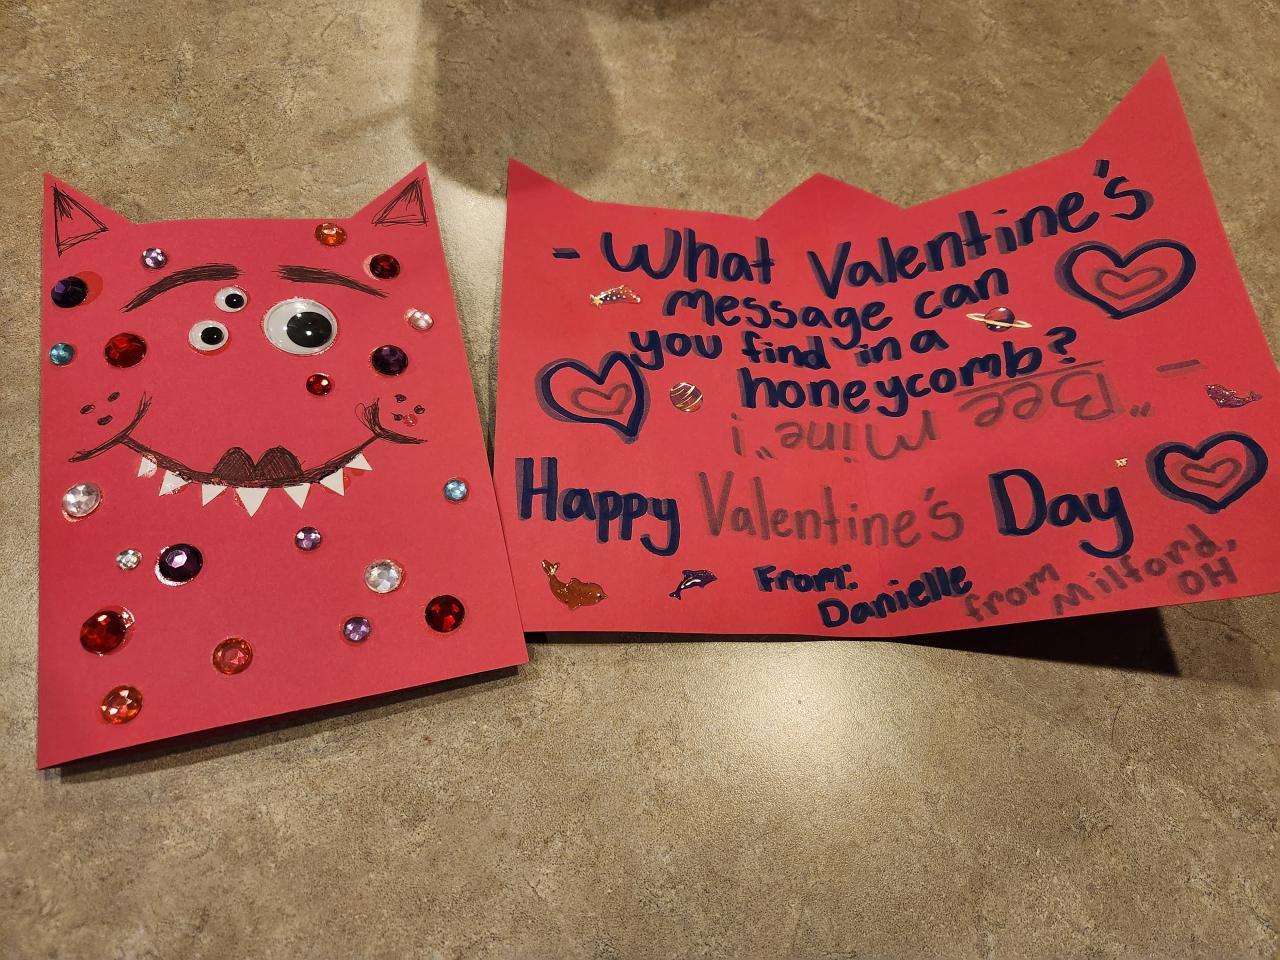 - What Valentine's
message can
you find in a
honeycomb?
- "Bee Mine"!
Happy Valentine's Day
From:
Danielle
from
Milford,
OH